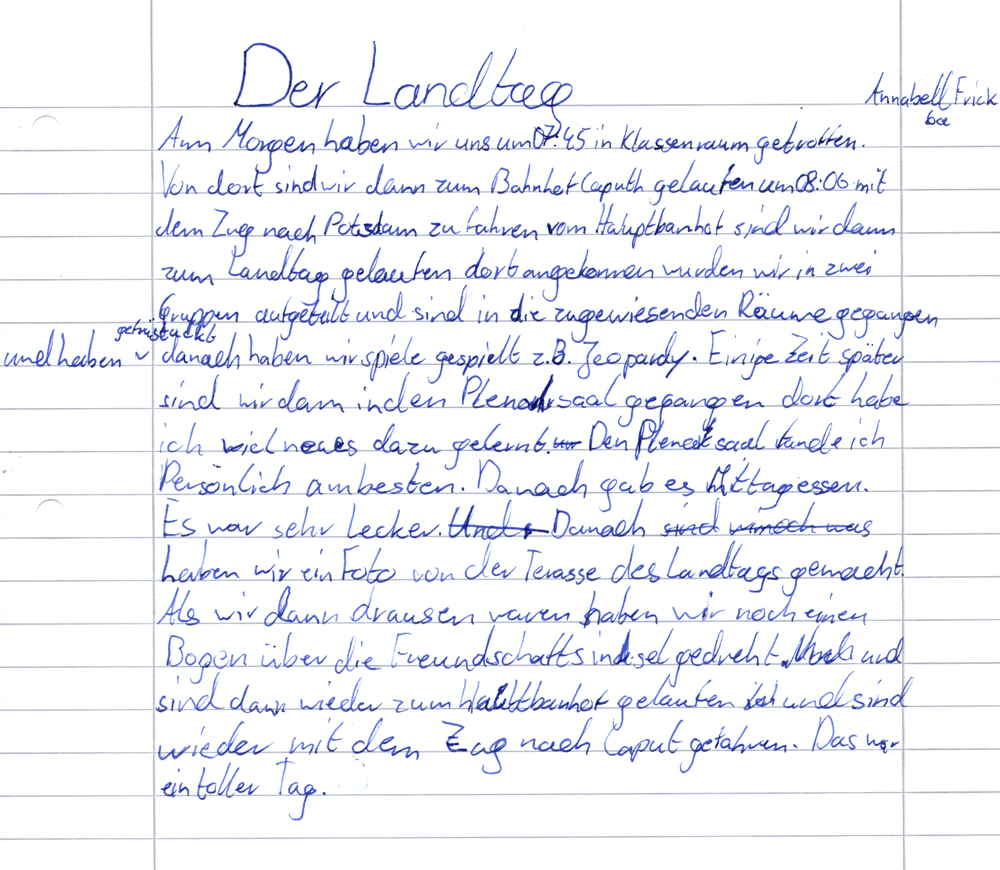 Der Landtag
Annabell Frick
6a
Am Morgen haben wir uns um 07:45 in Klassenraum getroffen.
Von dort sind wir dann zum Bahnhof Caputh gelaufen um 08:06 mit
dem Zug nach Potsdam zu fahren vom Hauptbanhof sind wir dann
zum Landtag gelaufen dort angekommen wurden wir in zwei
Gruppen aufgeteilt und sind in die zugewiesenden Räume gegangen
gefrüstückt
und haben danach haben wir spiele gespielt z.B. Jeopardy. Einige Zeit später
sind wir dann in den Plenarsaal gegangen dort habe
ich viel neues dazu gelernt. Den Plenarsaal fande ich
Persönlich am besten. Danach gab es Mittagessen.
Es war sehr Lecker. Danach
haben wir ein Foto von der Terasse des Landtags gemacht.
Als wir dann drausen waren haben wir noch einen
Bogen über die Freundschaftsinsel gedreht und
sind dann wieder zum Hauptbanhof gelaufen und sind
wieder mit dem Zug nach Caput gefahren. Das war
ein toller Tag.